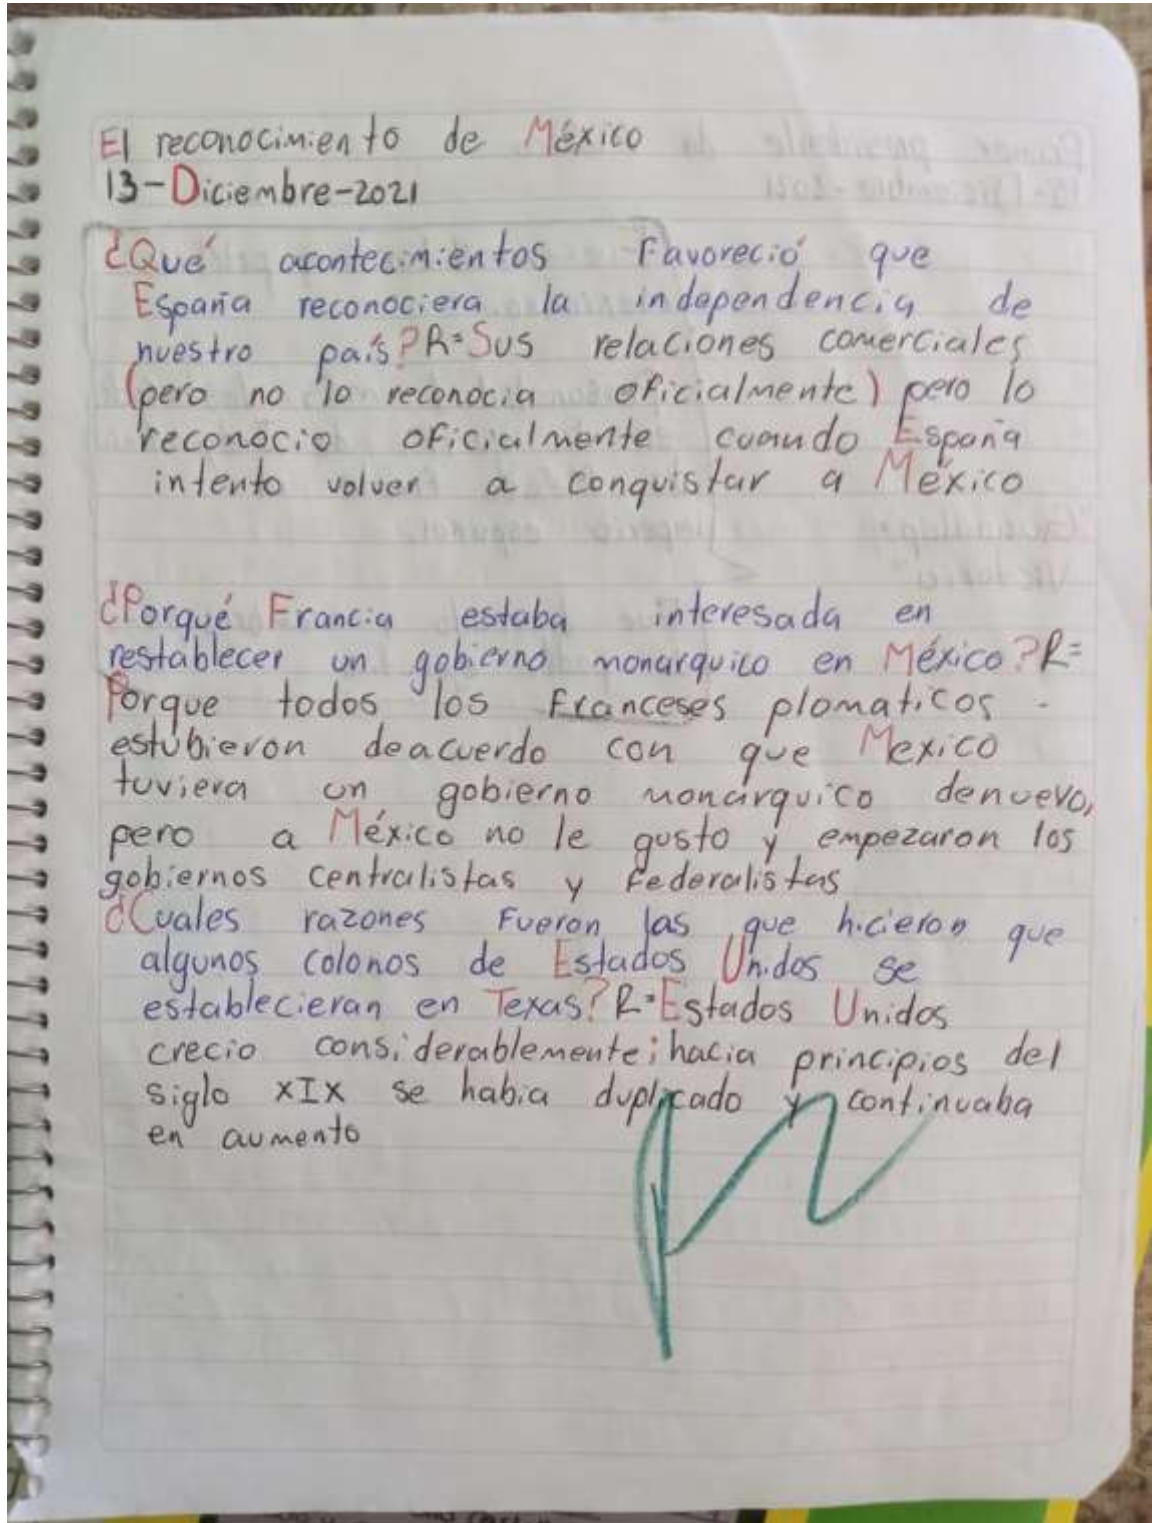 El reconocimiento de México
13-Diciembre-2021
¿Qué acontecimientos Favoreció que
España reconociera la independencia de
nuestro país?R=Sus relaciones comerciales
(pero no lo reconocia oficialmente) pero lo
reconocio oficialmente cuando España
intento volver a conquistar a México
¿Porqué Francia estaba interesada en
restablecer un gobierno monarquico en México?R=
Porque todos los Franceses plomaticos
estubieron deacuerdo con que Mexico
tuviera un gobierno monárquico denuevo,
pero a México no le gusto y empezaron los
gobiernos centralistas y Federalistas
¿Cuales razones Fueron las que hicieron que
algunos colonos de Estados Unidos se
establecieran en Texas?R=Estados Unidos
crecio considerablemente; hacia principios del
siglo XIX se habia duplicado y continuaba
en aumento